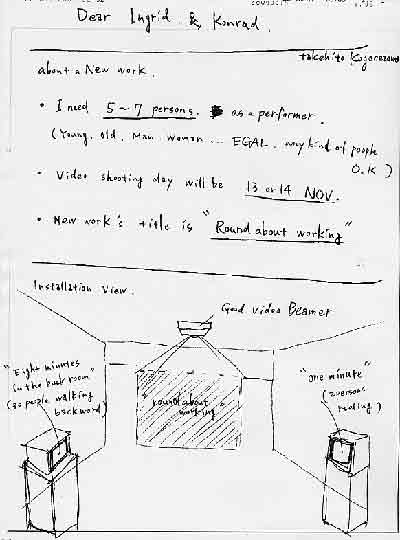 Dear Ingrid & Konrad.
takehito Koganezawa
about a New work.
• I need 5~7 persons. as a performer.
(Young, old, Man, Woman ... EGAL. any kind of people
O.K)
• Video shooting day will be 13 or 14 NOV.
• New work's title is "Round about working"
Installation View.
Good Video Beamer
"Eight minutes
in the back room"
(30 people walking
backword)
"round about
working"
"one minute"
(
reading)